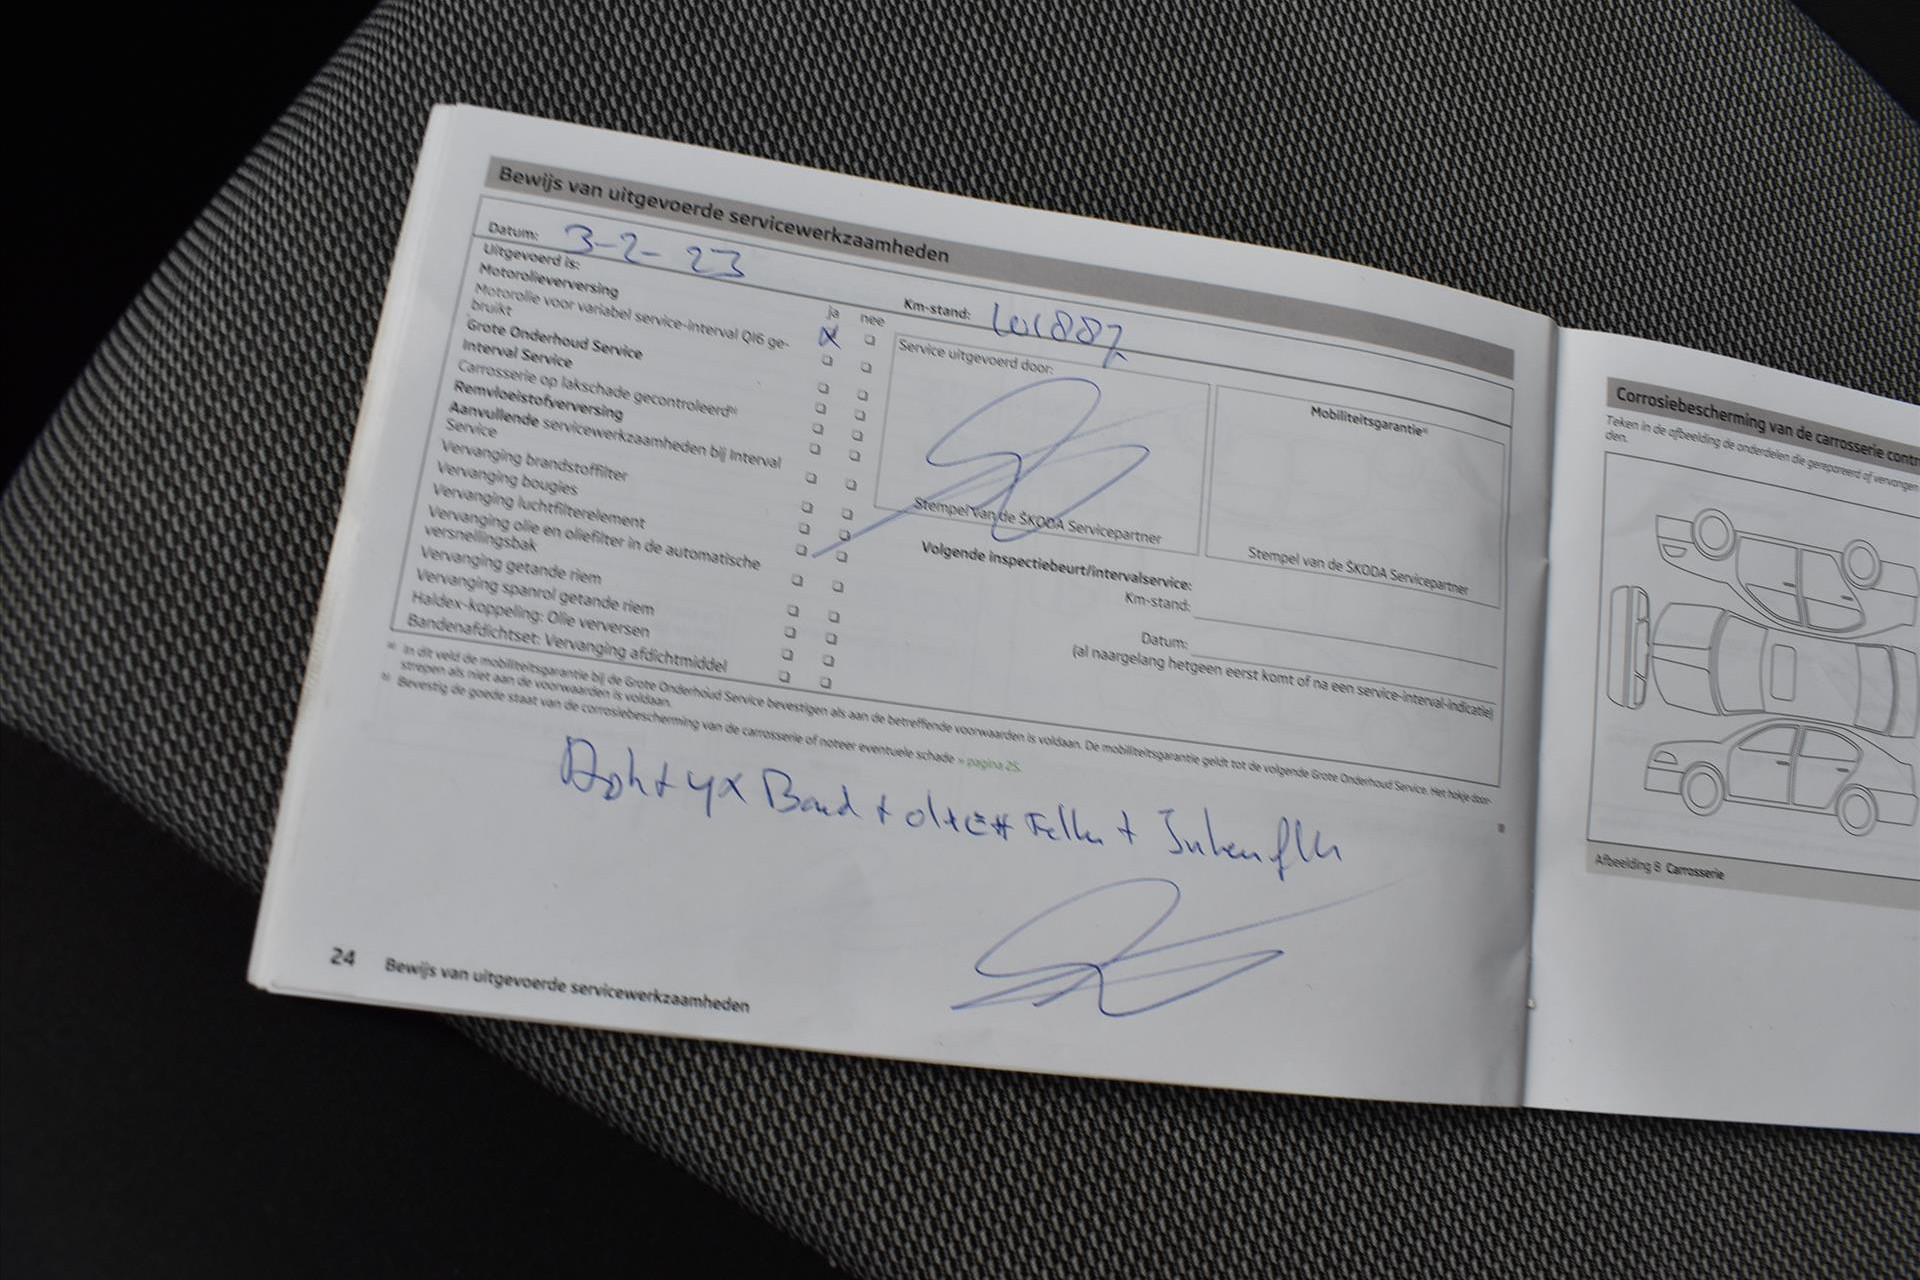 Bewijs van uitgevoerde servicewerkzaamheden
Datum: 3-2-23
Km-stand:
Uitgevoerd is:
ja nee
Motorolieverversing
Motorolie voor variabel service-interval QI6 ge-
bruikt
Grote Onderhoud Service
Interval Service
Carrosserie op lakschade gecontroleerd
Remvloeistofverversing
Aanvullende servicewerkzaamheden bij Interval
Service
Vervanging brandstoffilter
Vervanging bougies
Vervanging luchtfilterelement
Vervanging olie en oliefilter in de automatische
versnellingsbak
Vervanging getande riem
Vervanging spanrol getande riem
Haldex-koppeling: Olie verversen
Bandenafdichtset: Vervanging afdichtmiddel
Service uitgevoerd door:
Stempel van de ŠKODA Servicepartner
Mobiliteitsgarantie
Stempel van de ŠKODA Servicepartner
Volgende inspectiebeurt/intervalservice:
Km-stand:
Datum:
(al naargelang hetgeen eerst komt of na een service-interval-indicatie)
In dit veld de mobiliteitsgarantie bij de Grote Onderhoud Service bevestigen als aan de betreffende voorwaarden is voldaan. De mobiliteitsgarantie geldt tot de volgende Grote Onderhoud Service. Het hokje door-
strepen als niet aan de voorwaarden is voldaan.
Bevestig de goede staat van de corrosiebescherming van de carrosserie of noteer eventuele schade » pagina 25.
4x Band +
24 Bewijs van uitgevoerde servicewerkzaamheden
Corrosiebescherming van de carrosserie contr
Teken in de afbeelding de onderdelen die gerepareerd of vervangen
den.
Afbeelding 8 Carrosserie